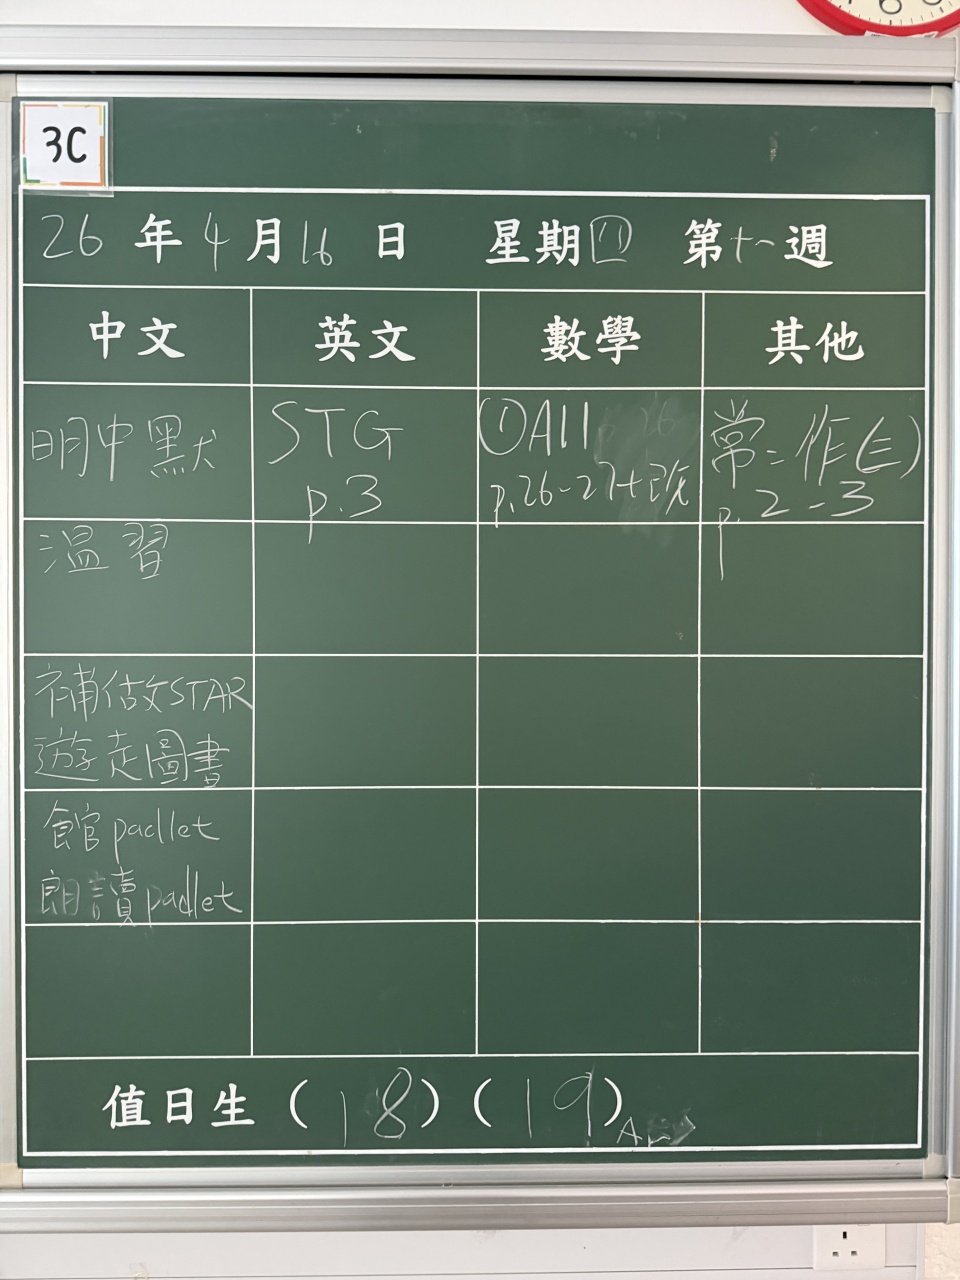 3C
26 年 4 月 16 日 星期四 第十一週
中文 英文 數學 其他
明中默
溫習
補做文STAR
遊走圖書
館padlet
朗讀padlet
STG
p.3
①A11
p.26-27+改
常=作(三)
p.2-3
值日生 (18) (19)